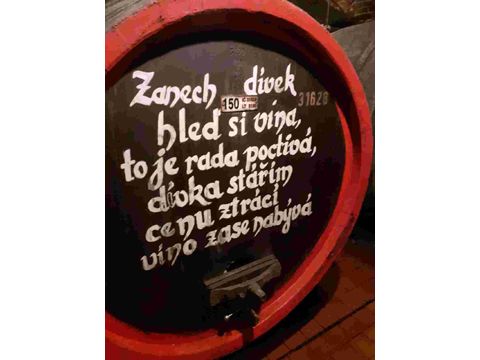 Zanech dívek
150
31628
hleď si vína,
to je rada poctivá,
dívka stářím
cenu ztrácí
víno zase nabývá